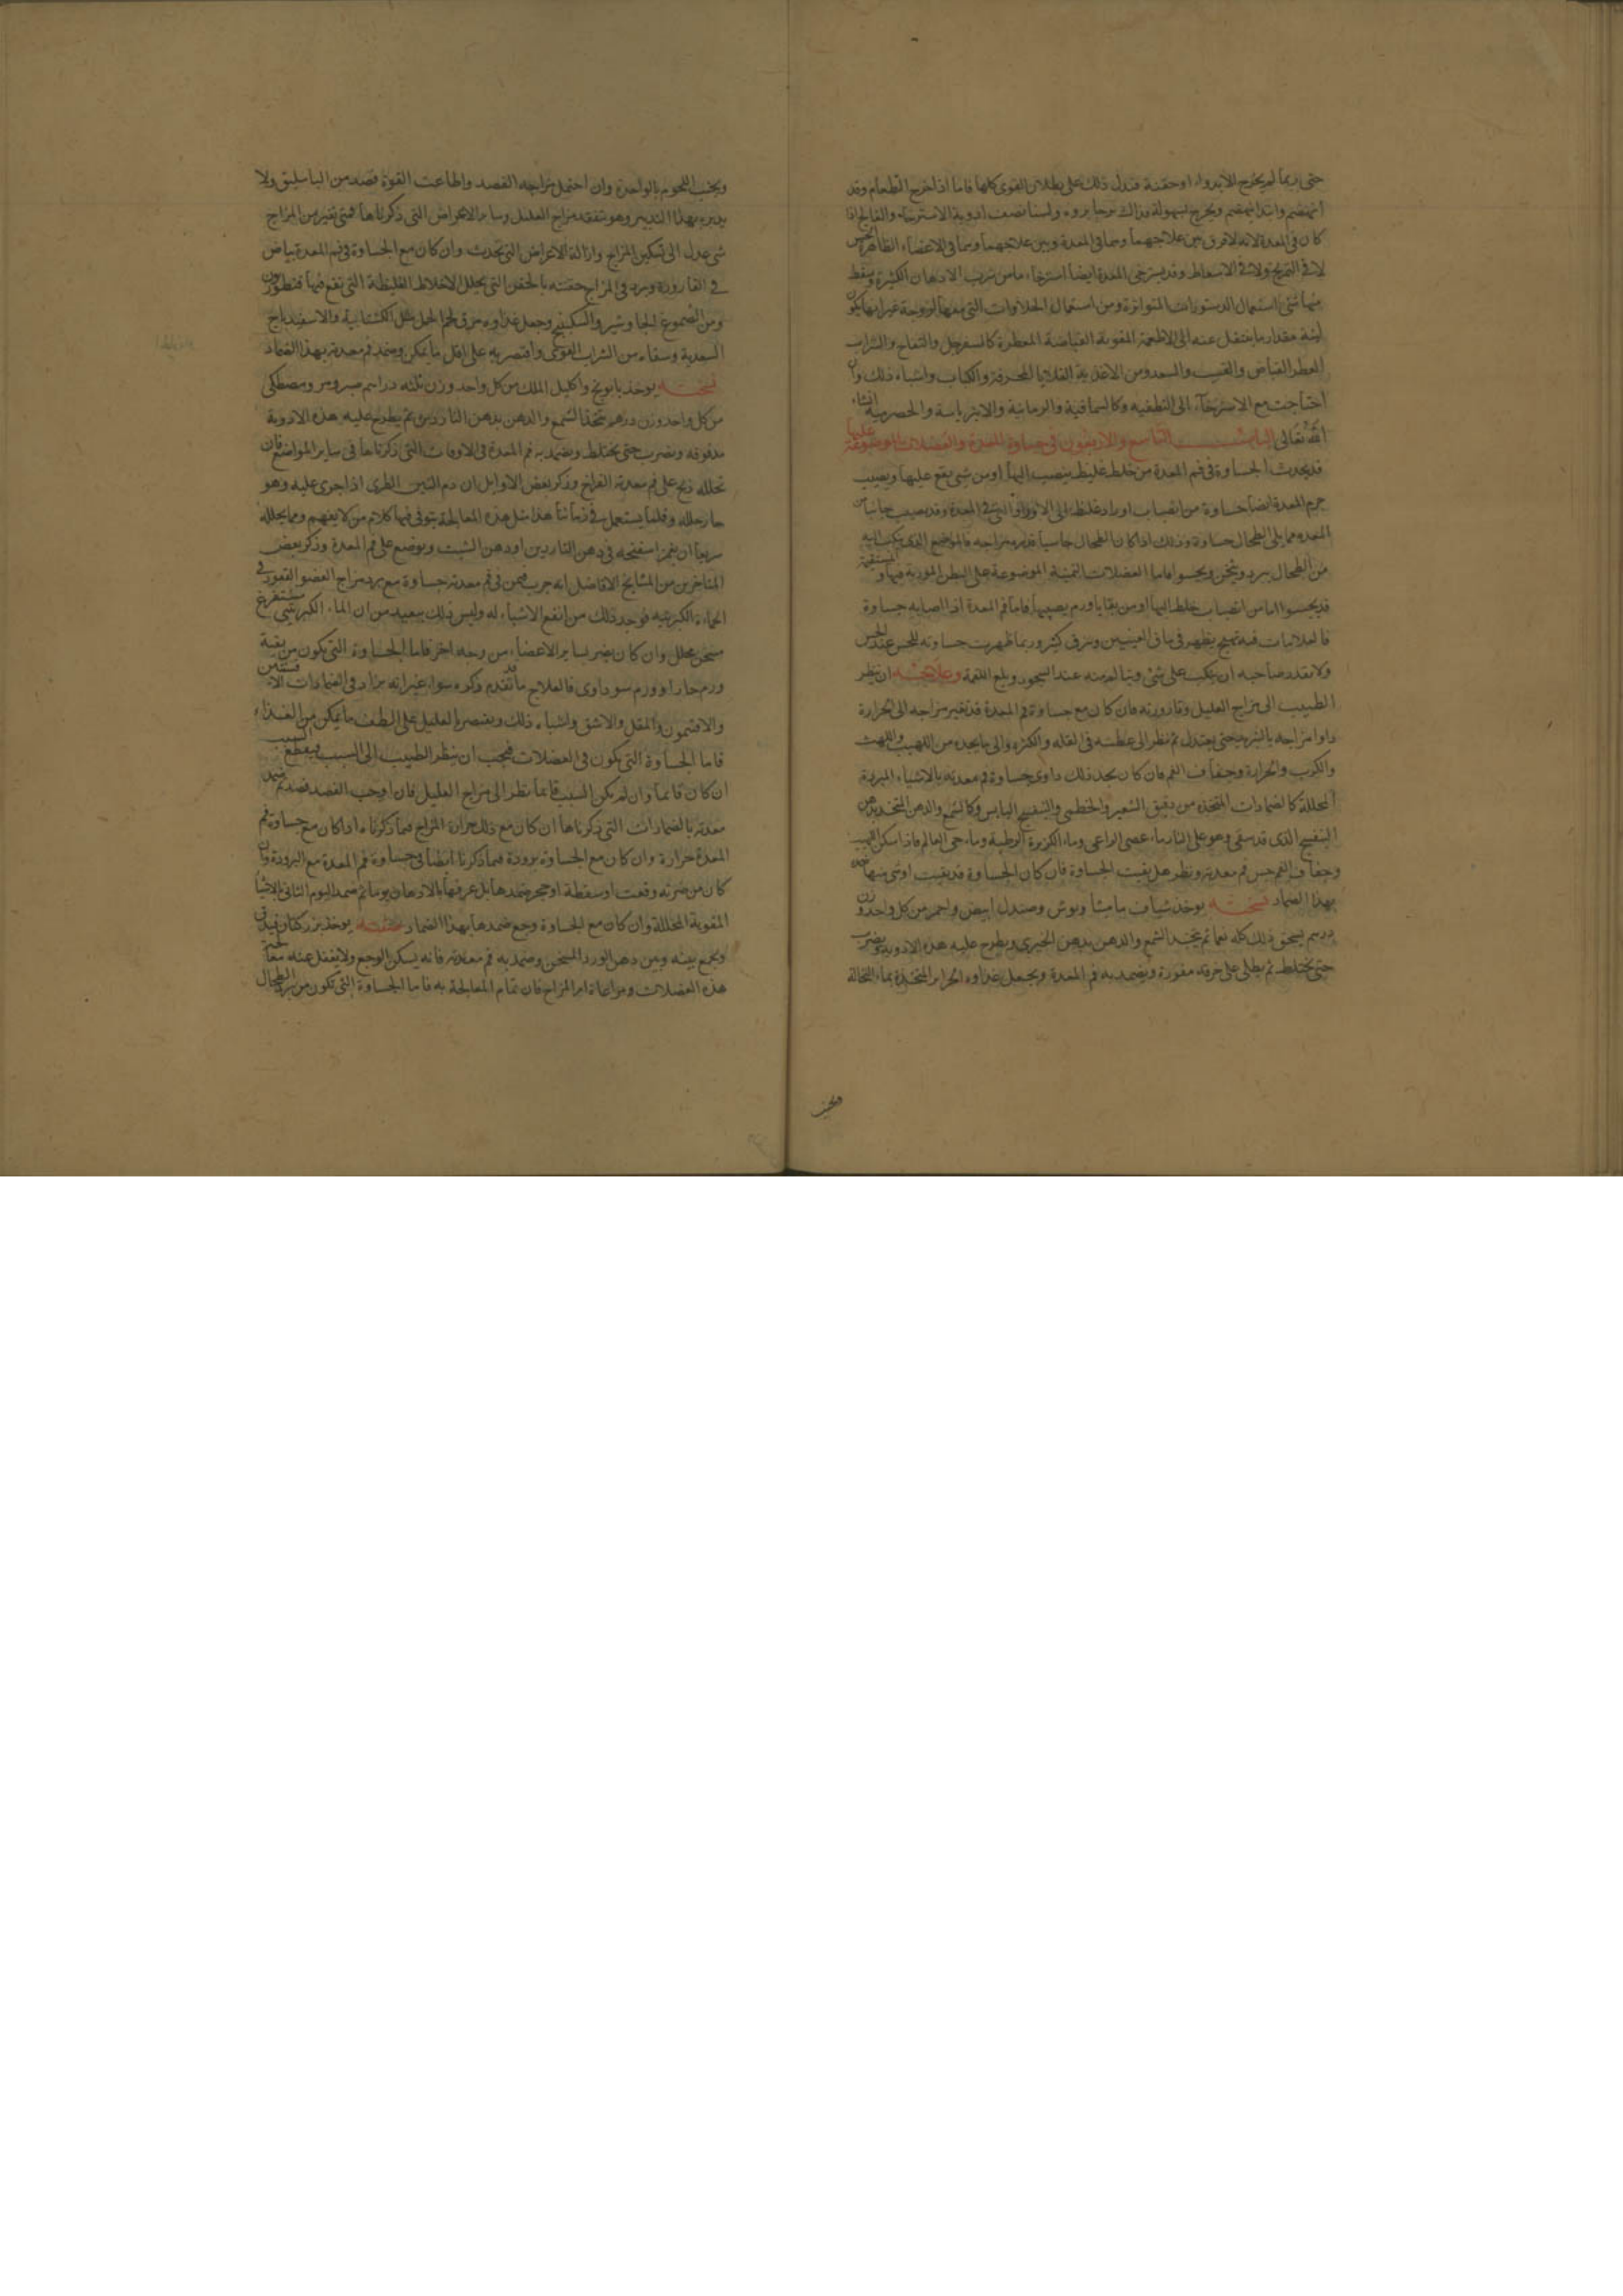 حتى ربما لم يخرج الا بدواء او حقنة فتدل ذلك على بطلان القوى كلها فاما اذا خرج الطعام وقد
انهضم وابتدا ينهضم ويخرج بسهولة فذاك يرجا بروه ولسنا نصف ادوية الاسترخاء والفالج اذا
كان في المعدة لانه لا فرق بين علاجهما وهما في المعدة وبين علاجهما وهما في الاعضاء الظاهرة
لا في التمريخ ولا في الاسعاط وقد يسترخى المعدة ايضا استرخاء ما من شرب الادهان الكثيرة
منها شئ استعمال الدستورات المتواترة ومن استعمال الحلاوات التي معها لزوجة غير انها يكون
لينة مقدار ما ينتقل عنه الى الاطعمة المقوية القباضة المعطرة كالسفرجل والتفاح والشراب
العطر القباض والقسب والسعد ومن الاغذية القلايا المحرقة والكباب واشباه ذلك وان
احتاجت مع الاسترخاء الى التطفية وكالسماقية والرمانية والانبرباسية والحصرمية انشاء
الله تعالى الباب التاسع والاربعون في جساوة المعدة والعضلات الموضوعة عليها
قد يحدث الجساوة في فم المعدة من خلط غليظ ينصب اليها او من شئ يقع عليها ويصيب
جرم المعدة ايضا جساوة من انصباب اوراد غليظ الى الاوراد التي في المعدة وقد يصيب جانبا من
المعدة مما يلى الطحال جساوة وذلك اذا كان الطحال جاسيا فاسد مزاجه فالموضع الذي يكتب اليه
من الطحال يبرد ويثخن ويجسو فاما العضلات الثمنية الموضوعة على البطن الموربة فيها والمستقيمة
قد يجسو اما من انصباب خلط اليها او من بقايا ورم يصيبها فاما فم المعدة اذا اصابه جساوة
فالعلامات فيه تهيج يظهر في ماق العينين وعرق كثير وربما ظهرت جساوته للمجس عند الجس
ولا يقدر صاحبه ان ينكب على شئ ويتالم منه عند السجود وبلع اللقمة وعلاجه ان ينظر
الطبيب الى مزاج العليل وقارورته فان كان مع جساوة فم المعدة قد تغير مزاجه الى الحرارة
داوا مزاجه بالتبريد حتى يعتدل ثم نظر الى عطشه في القلة والكثرة والى ما يجده من اللهيب واللهث
والكرب والحرارة وجفاف الفم فان كان يجد ذلك داوى جساوة فم معدته بالاشياء المبردة
المحللة كالضمادات المتخذة من دقيق الشعير والخطمى والبنفسج اليابس وكالشمع والدهن المتخذ بدهن
البنفسج الذى قد سقى وهو على النار ماء عصى الراعى وماء الكزبرة الرطبة وماء حى العالم فاذا سكن اللهيب
وجفاف الفم جس فم معدته ونظر هل بقيت الجساوة فان كان الجساوة قد بقيت او شئ منها ضمده
بهذا الضماد نسخته يوخذ شياف ماميثا وبوش وصندل ابيض واحمر من كل واحد وزن
درهم يسحق ذلك كله نعما ثم يتخذ الشمع والدهن بدهن الخيرى ويطرح عليه هذه الادوية ويضرب
حتى يختلط ثم يطلى على خرقة مقورة ويضمد به فم المعدة ويجعل غذاوه الحراير المتخذة بماء النخالة
ويجنب
ويجنب اللحوم بالواحدة وان احتمل مزاجه الفصد واطاعت القوة فصد من الباسليق ولا
يدبره بهذا التدبير وهو يتفقد مزاج العليل وساير الاعراض التى ذكرناها فمتى تغير من المزاج
شئ عدل الى تسكين المزاج وازالة الاعراض التى تحدث وان كان مع الجساوة فى فم المعدة بياض
فى القارورة وبرد فى المزاج حقنه بالحقن التى يحلل الاخلاط الغليظة التى تقع فيها قنطوريون
ومن الصموغ الجاوشير والسكبينج وجعل غذاوه مرق لحم الحمل مثل الكشتابية والاسفيدباج
السعدية وسقاه من الشراب القوى واقتصر به على اقل ما يمكن وضمد فم معدته بهذا الضماد
نسخته يوخذ بابونج واكليل الملك من كل واحد وزن ثلثه دراهم صبر ومر ومصطكى
من كل واحد وزن درهم يتخذ الشمع والدهن بدهن الناردين ثم يطرح عليه هذه الادوية
مدقوقه ويضرب حتى يختلط ويضمد به فم المعدة فى الاوقات التى ذكرناها فى ساير المواضع فان
تحلله ذبح على فم معدته الفراخ وذكر بعض الاوايل ان دم التيس الطرى اذا جرى عليه وهو
حار حلله وقلما يستعمل فى زماننا هذا مثل هذه المعالجة يتوقى فيها كلام من لا يفهم ومما يحلله
سريعا ان يغمز اسفنجه فى دهن الناردين او دهن الشبت ويوضع على فم المعدة وذكر بعض
المتاخرين من المشايخ الافاضل انه جرب فيمن فى فم معدته جساوة مع برد مزاج العضو القعود فى
الحماءة الكبريتيه فوجد ذلك من انفع الاشياء له وليس ذلك ببعيد من ان الماء الكبريتى مستفرغ
مسخن محلل وان كان يضر بساير الاعضاء من وجه اخر فاما الجساوة التى يكون من بقية
ورم حار او ورم سوداوى فالعلاج ما قد تقدم ذكره سواء غير انه يزاد فى الضمادات الافسنتين
والافتيمون والمقل والاشق واشباه ذلك ويقتصر بالعليل على الطف ما يمكن من الغذاء
فاما الجساوة التى يكون فى العضلات فيجب ان ينظر الطبيب الى السبب فيقطع السبب
ان كان قائما وان لم يكن السبب قائما نظر الى مزاج العليل فان اوجب الفصد فصد ثم ضمد
معدته بالضمادات التى ذكرناها ان كان مع ذلك حرارة المزاج فما ذكرناه اذا كان مع جساوة فم
المعدة حرارة وان كان مع الجساوة برودة فما ذكرنا ايضا فى جساوة فم المعدة مع البرودة وان
كان من ضربة وقعت او سقطة او حجر ضمدها بل عرقها بالادهان يوما ثم ضمد اليوم الثانى بالاشيا
المقوية المحللة وان كان مع الجساوة وجع ضمدها بهذا الضماد نسخته يوخذ بزر كتان فيدق
ويجمع بينه وبين دهن الورد المسخن وضمد به فم معدته فانه يسكن الوجع ولا يغفل عنه
هذه العضلات ومراعاة امر المزاج فان تمام المعالجة به فاما الجساوة التى تكون من الطحال